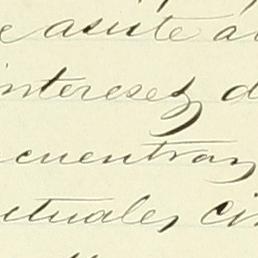 e asiste al
intereses d
cuentran
ctuales ci